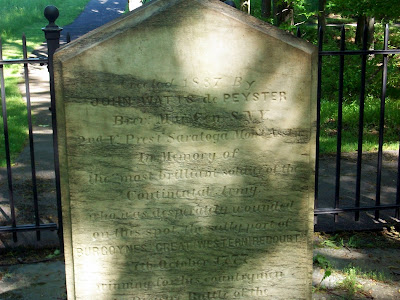 Erected 1887 By
JOHN WATTS de PEYSTER
Brev: Maj: Gen: S.N.Y.
2nd V. Prest Saratoga Mon't Ass't'n:
In Memory of
the most brilliant soldier of the
Continental Army
who was desperately wounded
on this spot the sally port of
BURGOYNES GREAT WESTERN REDOUBT
7th October 1777
winning for his countrymen
the Decisive Battle of the